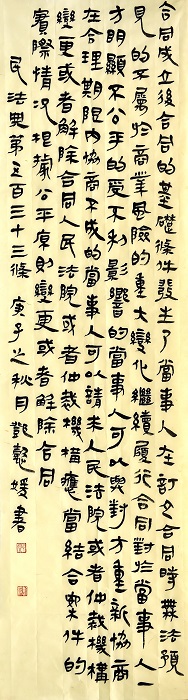 合同成立後合同的基礎條件發生了當事人在訂立合同時無法預
見的不屬於商業風險的重大變化繼續履行合同對於當事人一
方明顯不公平的受不利影響的當事人可以與對方重新協商
在合理期限内協商不成的當事人可以請求人民法院或者仲裁機構
變更或者解除合同人民法院或者仲裁機構應當結合案件的
實際情況根據公平原則變更或者解除合同
民法典第五百三十三條 庚子之秋月 鄧懿媛書